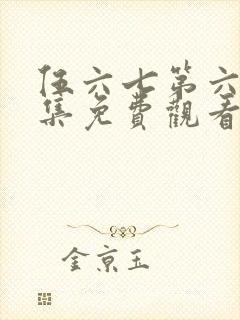 伍六七第六
集免費觀看
金京玉